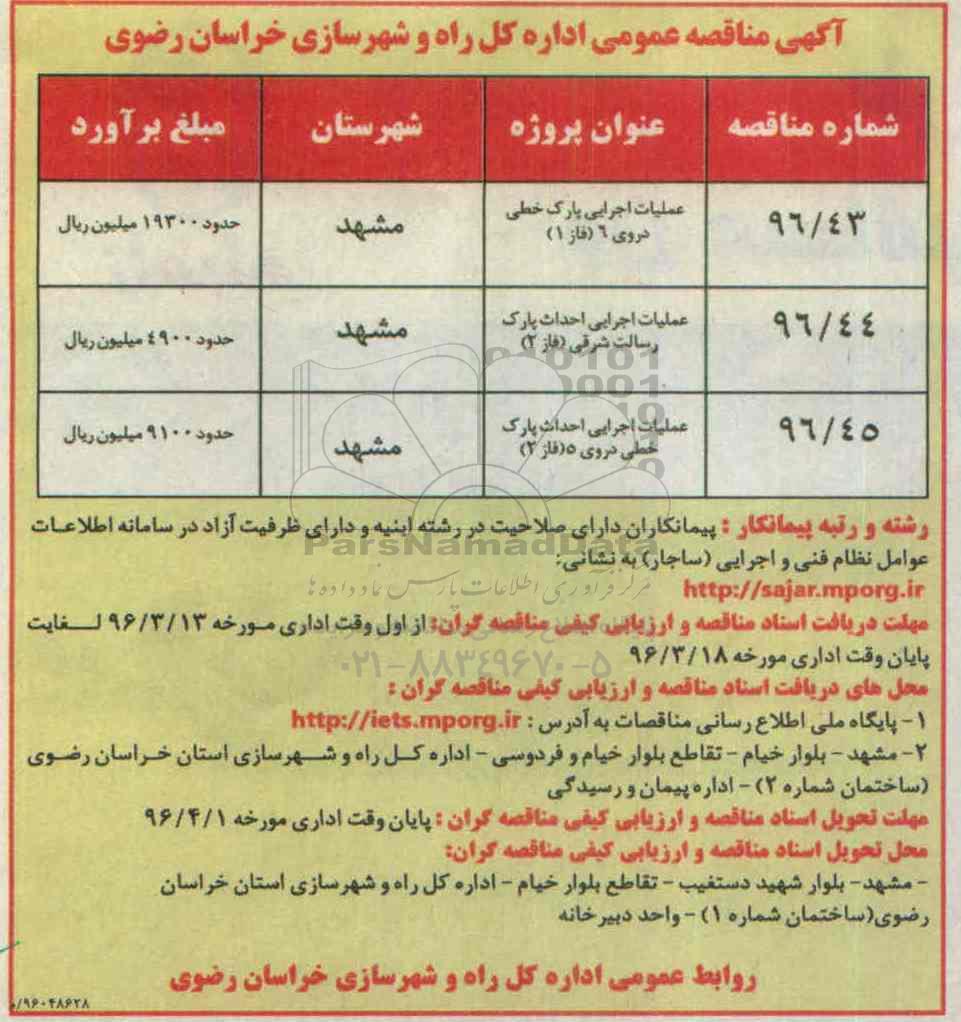 آگهی مناقصه عمومی اداره کل راه و شهرسازی خراسان رضوی
شماره مناقصه عنوان پروژه شهرستان مبلغ برآورد
۹۶/۴۳ عملیات اجرایی پارک خطی دروی ۶ (فاز ۱) مشهد حدود ۱۹۳۰۰ میلیون ریال
۹۶/۴۴ عملیات اجرایی احداث پارک رسالت شرقی (فاز ۲) مشهد حدود ۴۹۰۰ میلیون ریال
۹۶/۴۵ عملیات اجرایی احداث پارک خطی دروی ۵(فاز ۲) مشهد حدود ۹۱۰۰ میلیون ریال
رشته و رتبه پیمانکار : پیمانکاران دارای صلاحیت در رشته ابنیه و دارای ظرفیت آزاد در سامانه اطلاعات
عوامل نظام فنی و اجرایی (ساجار) به نشانی:
ParsNamadData
مرکز فرآوری اطلاعات پارس نماد داده ها
http://sajar.mporg.ir
مهلت دریافت اسناد مناقصه و ارزیابی کیفی مناقصه گران: از اول وقت اداری مورخه ۹۶/۳/۱۳ لغایت
پایان وقت اداری مورخه ۹۶/۳/۱۸
۰۲۱-۸۸۳۴۹۶۷۰-۵
محل های دریافت اسناد مناقصه و ارزیابی کیفی مناقصه گران :
۱- پایگاه ملی اطلاع رسانی مناقصات به آدرس : http://iets.mporg.ir
۲- مشهد - بلوار خیام - تقاطع بلوار خیام و فردوسی - اداره کل راه و شهرسازی استان خراسان رضوی
(ساختمان شماره ۲) - اداره پیمان و رسیدگی
مهلت تحویل اسناد مناقصه و ارزیابی کیفی مناقصه گران : پایان وقت اداری مورخه ۹۶/۴/۱
محل تحویل اسناد مناقصه و ارزیابی کیفی مناقصه گران:
- مشهد- بلوار شهید دستغیب - تقاطع بلوار خیام - اداره کل راه و شهرسازی استان خراسان
رضوی(ساختمان شماره ۱) - واحد دبیرخانه
روابط عمومی اداره کل راه و شهرسازی خراسان رضوی
۹۶۰۴۸۶۲۸/م